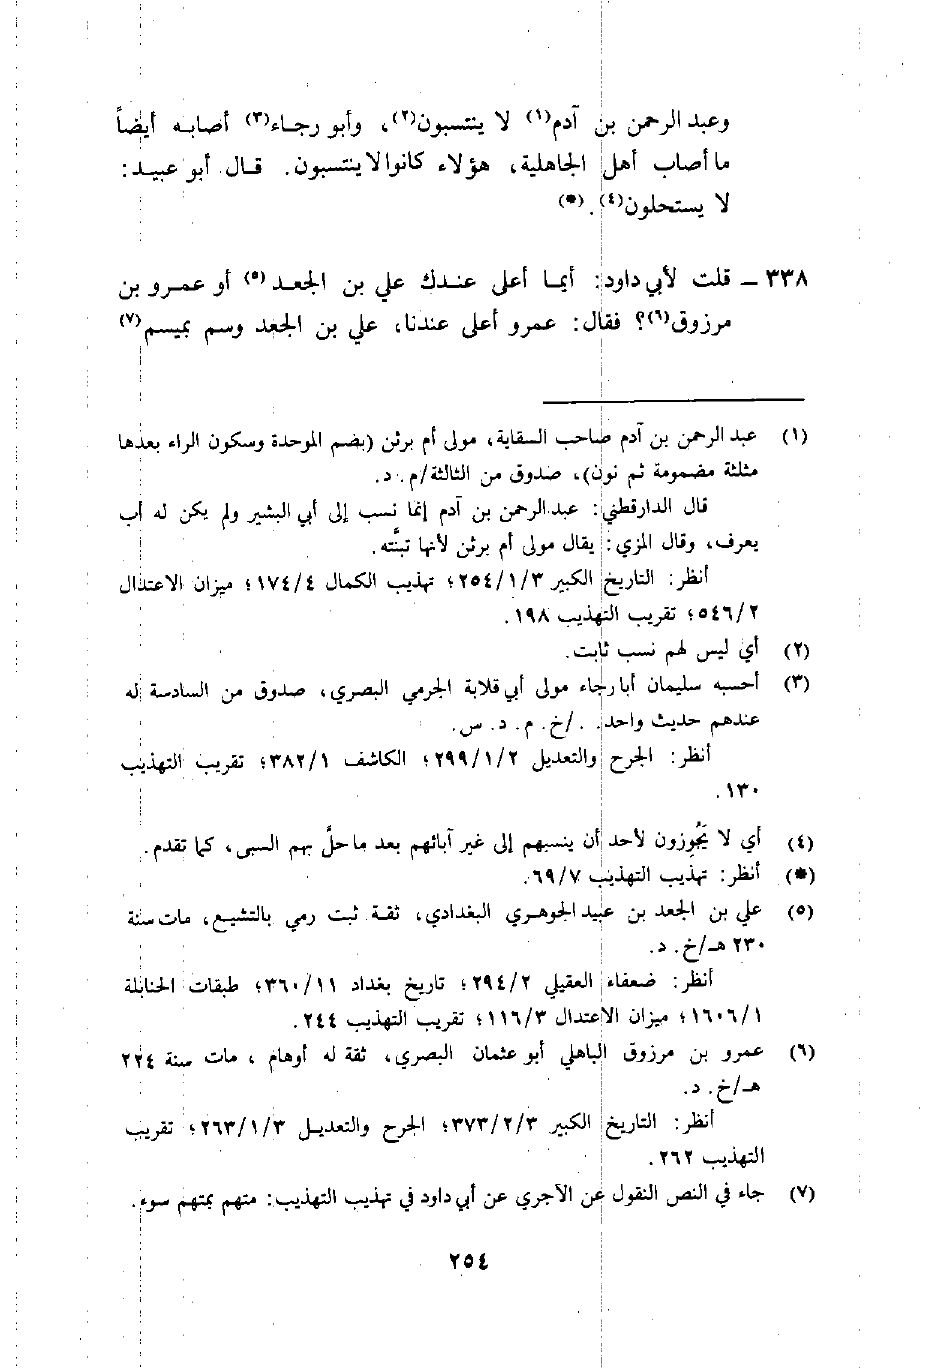 وعبد الرحمن بن آدم(١) لا ينتسبون(٢)، وأبو رجاء(٣) أصابه أيضاً
ما أصاب أهل الجاهلية، هؤلاء كانوا لا ينتسبون. قال أبو عبيد:
لا يستحلون(٤).(*)
٣٣٨ ــ قلت لأبي داود: أيما أعلى عندك علي بن الجعد(٥) أو عمرو بن
مرزوق(٦)؟ فقال: عمرو أعلى عندنا، علي بن الجعد وسم بميسم(٧)
(١) عبد الرحمن بن آدم صاحب السقاية، مولى أم برثن (بضم الموحدة وسكون الراء بعدها
مثلثة مضمومة ثم نون)، صدوق من الثالثة/م. د.
قال الدارقطني: عبد الرحمن بن آدم إنما نسب إلى أبي البشير ولم يكن له أب
يعرف، وقال المزي: يقال مولى أم برثن لأنها تبنَّته.
أنظر: التاريخ الكبير ٢٥٤/١/٣؛ تهذيب الكمال ١٧٤/٤؛ ميزان الاعتدال
٥٤٦/٢؛ تقريب التهذيب ١٩٨.
(٢) أي ليس لهم نسب ثابت.
(٣) أحسبه سليمان أبا رجاء مولى أبي قلابة الجرمي البصري، صدوق من السادسة له
عندهم حديث واحد. ./خ. م. د. س.
أنظر: الجرح والتعديل ٢٩٩/١/٢؛ الكاشف ٣٨٢/١؛ تقريب التهذيب
١٣٠.
(٤) أي لا يَجُوِزون لأحد أن ينسبهم إلى غير آبائهم بعد ما حلَّ بهم السبى، كما تقدم.
(*) أنظر: تهذيب التهذيب ٦٩/٧.
(٥) علي بن الجعد بن عبيد الجوهري البغدادي، ثقة ثبت رمي بالتشيع، مات سنة
٢٣٠ هـ/خ. د.
أنظر: ضعفاء العقيلي ٢٩٤/٢؛ تاريخ بغداد ٣٦٠/١١؛ طبقات الحنابلة
١٦٠٦/١؛ ميزان الاعتدال ١١٦/٣؛ تقريب التهذيب ٢٤٤.
(٦) عمرو بن مرزوق الباهلي أبو عثمان البصري، ثقة له أوهام ، مات سنة ٢٢٤
هـ/خ. د.
أنظر: التاريخ الكبير ٣٧٣/٢/٣؛ الجرح والتعديل ٢٦٣/١/٣؛ تقريب
التهذيب ٢٦٢.
(٧) جاء في النص النقول عن الآجري عن أبي داود في تهذيب التهذيب: متهم بمتهم سوء.
٢٥٤